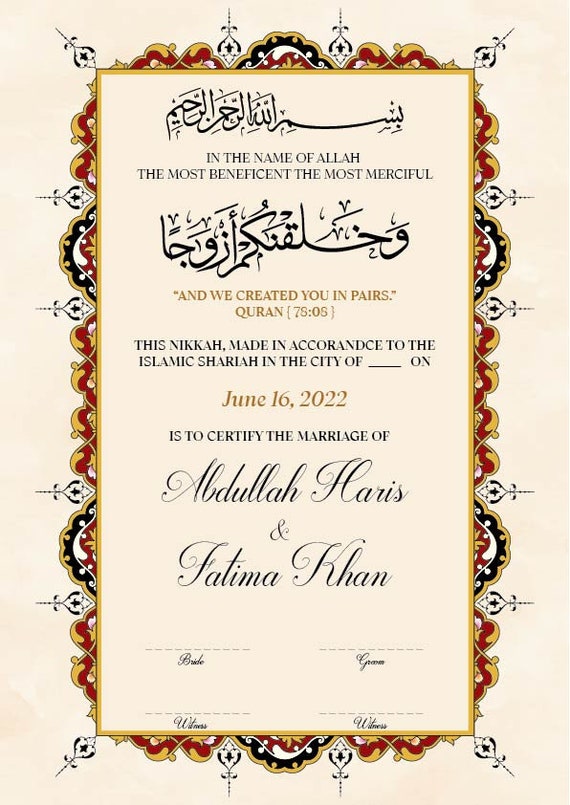 بسم الله الرحمن الرحيم
IN THE NAME OF ALLAH
THE MOST BENEFICENT THE MOST MERCIFUL
وَخَلَقْنَكُمْ أَزْوَجًا
“AND WE CREATED YOU IN PAIRS.”
QURAN { 78:08 }
THIS NIKKAH, MADE IN ACCORANDCE TO THE
ISLAMIC SHARIAH IN THE CITY OF ____ ON
June 16, 2022
IS TO CERTIFY THE MARRIAGE OF
Abdullah Haris
&
Fatima Khan
Bride Groom
Witness Witness